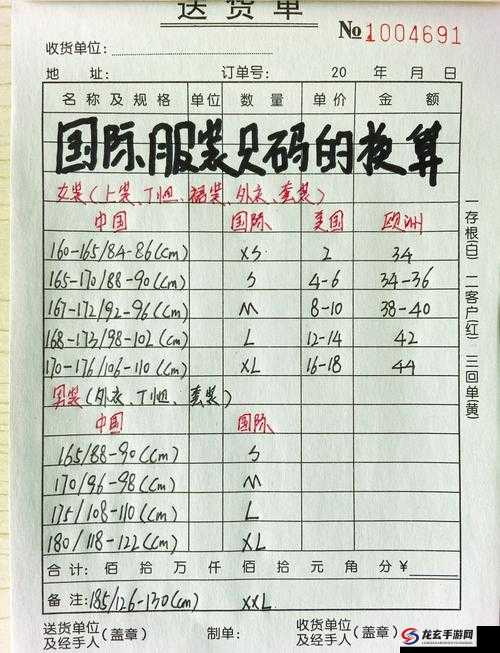 送货单
№1004691
收货单位：
地 址： 订单号： 20 年 月 日
名称及规格 单位 数量 单价 金额
国际服装尺码的换算
女装(上装、T恤、裙装、外衣、套装)
中国 国际 美国 欧洲
160-165/84-86(cm) XS 2 34
165-170/88-90(cm) S 4-6 34-36
167-172/92-96(cm) M 8-10 38-40
168-173/98-102(cm) L 12-14 42
170-176/106-110(cm) XL 16-18 44
男装(外衣、T恤、套装)
中国 国际
165/88-90(cm) S
170/96-98(cm) M
175/108-110(cm) L
180/118-122(cm) XL
合计： 佰 拾 万 仟 佰 拾 元 角 分￥
备注：185/126-130(cm) XXL
送货单位及经手人(盖章) 制单： 收货单位及经手人
一存根(白) 二客户(红) 三回单(黄)
龙玄手游网